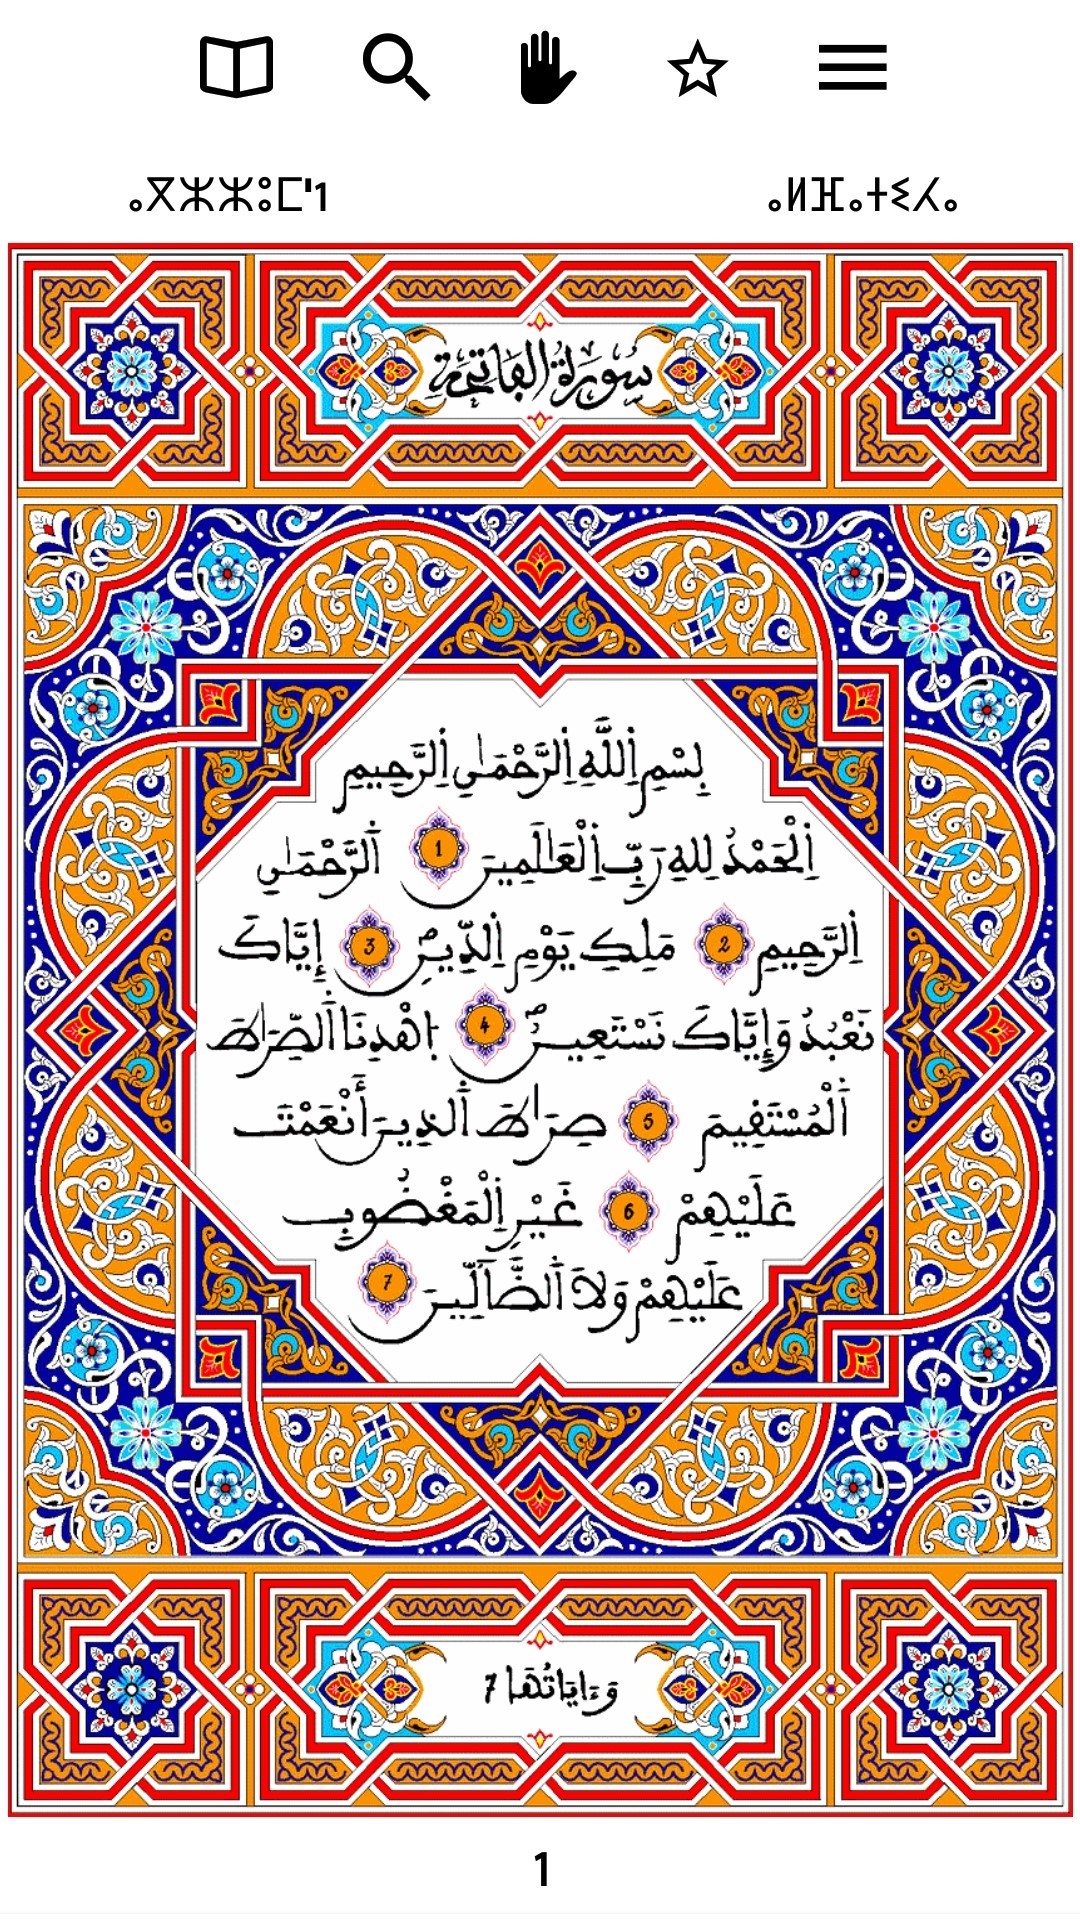 ⴰⴳⵣⵣⵓⵎ'1
ⴰⵍⴼⴰⵜⵉⵃⴰ
سُورَةُ الْفَاتِحَةِ
بِسْمِ اِ۬للَّهِ اِ۬لرَّحْمَٰنِ اِ۬لرَّحِيمِ
اِ۬لْحَمْدُ لِلهِ رَبِّ اِ۬لْعَٰلَمِينَ 1 اَ۬لرَّحْمَٰنِ
اِ۬لرَّحِيمِ 2 مَلِكِ يَوْمِ اِ۬لدِّينِ 3 إِيَّاكَ
نَعْبُدُ وَإِيَّاكَ نَسْتَعِينُ 4 اِ۪هْدِنَا اَ۬لصِّرَٰطَ
اَ۬لْمُسْتَقِيمَ 5 صِرَٰطَ اَ۬لذِينَ أَنْعَمْتَ
عَلَيْهِمْ 6 غَيْرِ اِ۬لْمَغْضُوبِ
عَلَيْهِمْ وَلَا اَ۬لضَّآلِّينَ 7
وَءَايَاتُهَا 7
1